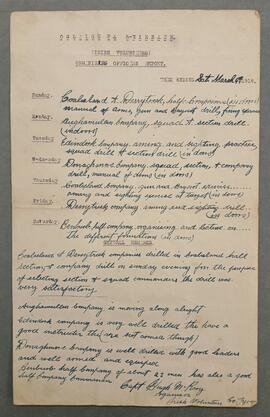 OGLAIGH NA h-EIREANN.
(IRISH VOLUNTEERS)
ORGANISING OFFICERS REPORT.
WEEK ENDING, Sat March 4th 1916.
Sunday. Coalisland & Derrytresk, half-Companies (in doors)
manual of arms, gun and bayonet drill, firing
Aughamullan company, squad & section drill
(indoors)
Tuesday Edendork company, aiming and sighting practice,
squad drill & section drill (in doors)
Wednesday Donaghmore company, squad, section, & company
drill, manual of arms (in doors)
Thursday Coalisland company, gun and bayonet
aiming and sighting
Friday. Derrytresk company aiming and sighting drill
(in doors)
Saturday. Benburb half company, organising and lecture on
the different formations (in doors)
GENERAL REMARKS
Coalisland & Derrytresk companies drilled in Coalisland hall
section & company drill on sunday evening for the purpose
of selecting section & squad commanders the drill was
very satisfactory.
Aughamullan company is moving along alright
Edendork company is very well drilled they have a
good instructor
Donaghmore Company is well drilled with good leaders
and well armed and equipped
Benburb half company of about 25 men has also a good
half company Commander
Capt Hugh
Organiser
Irish Volunteers Co. Tyrone